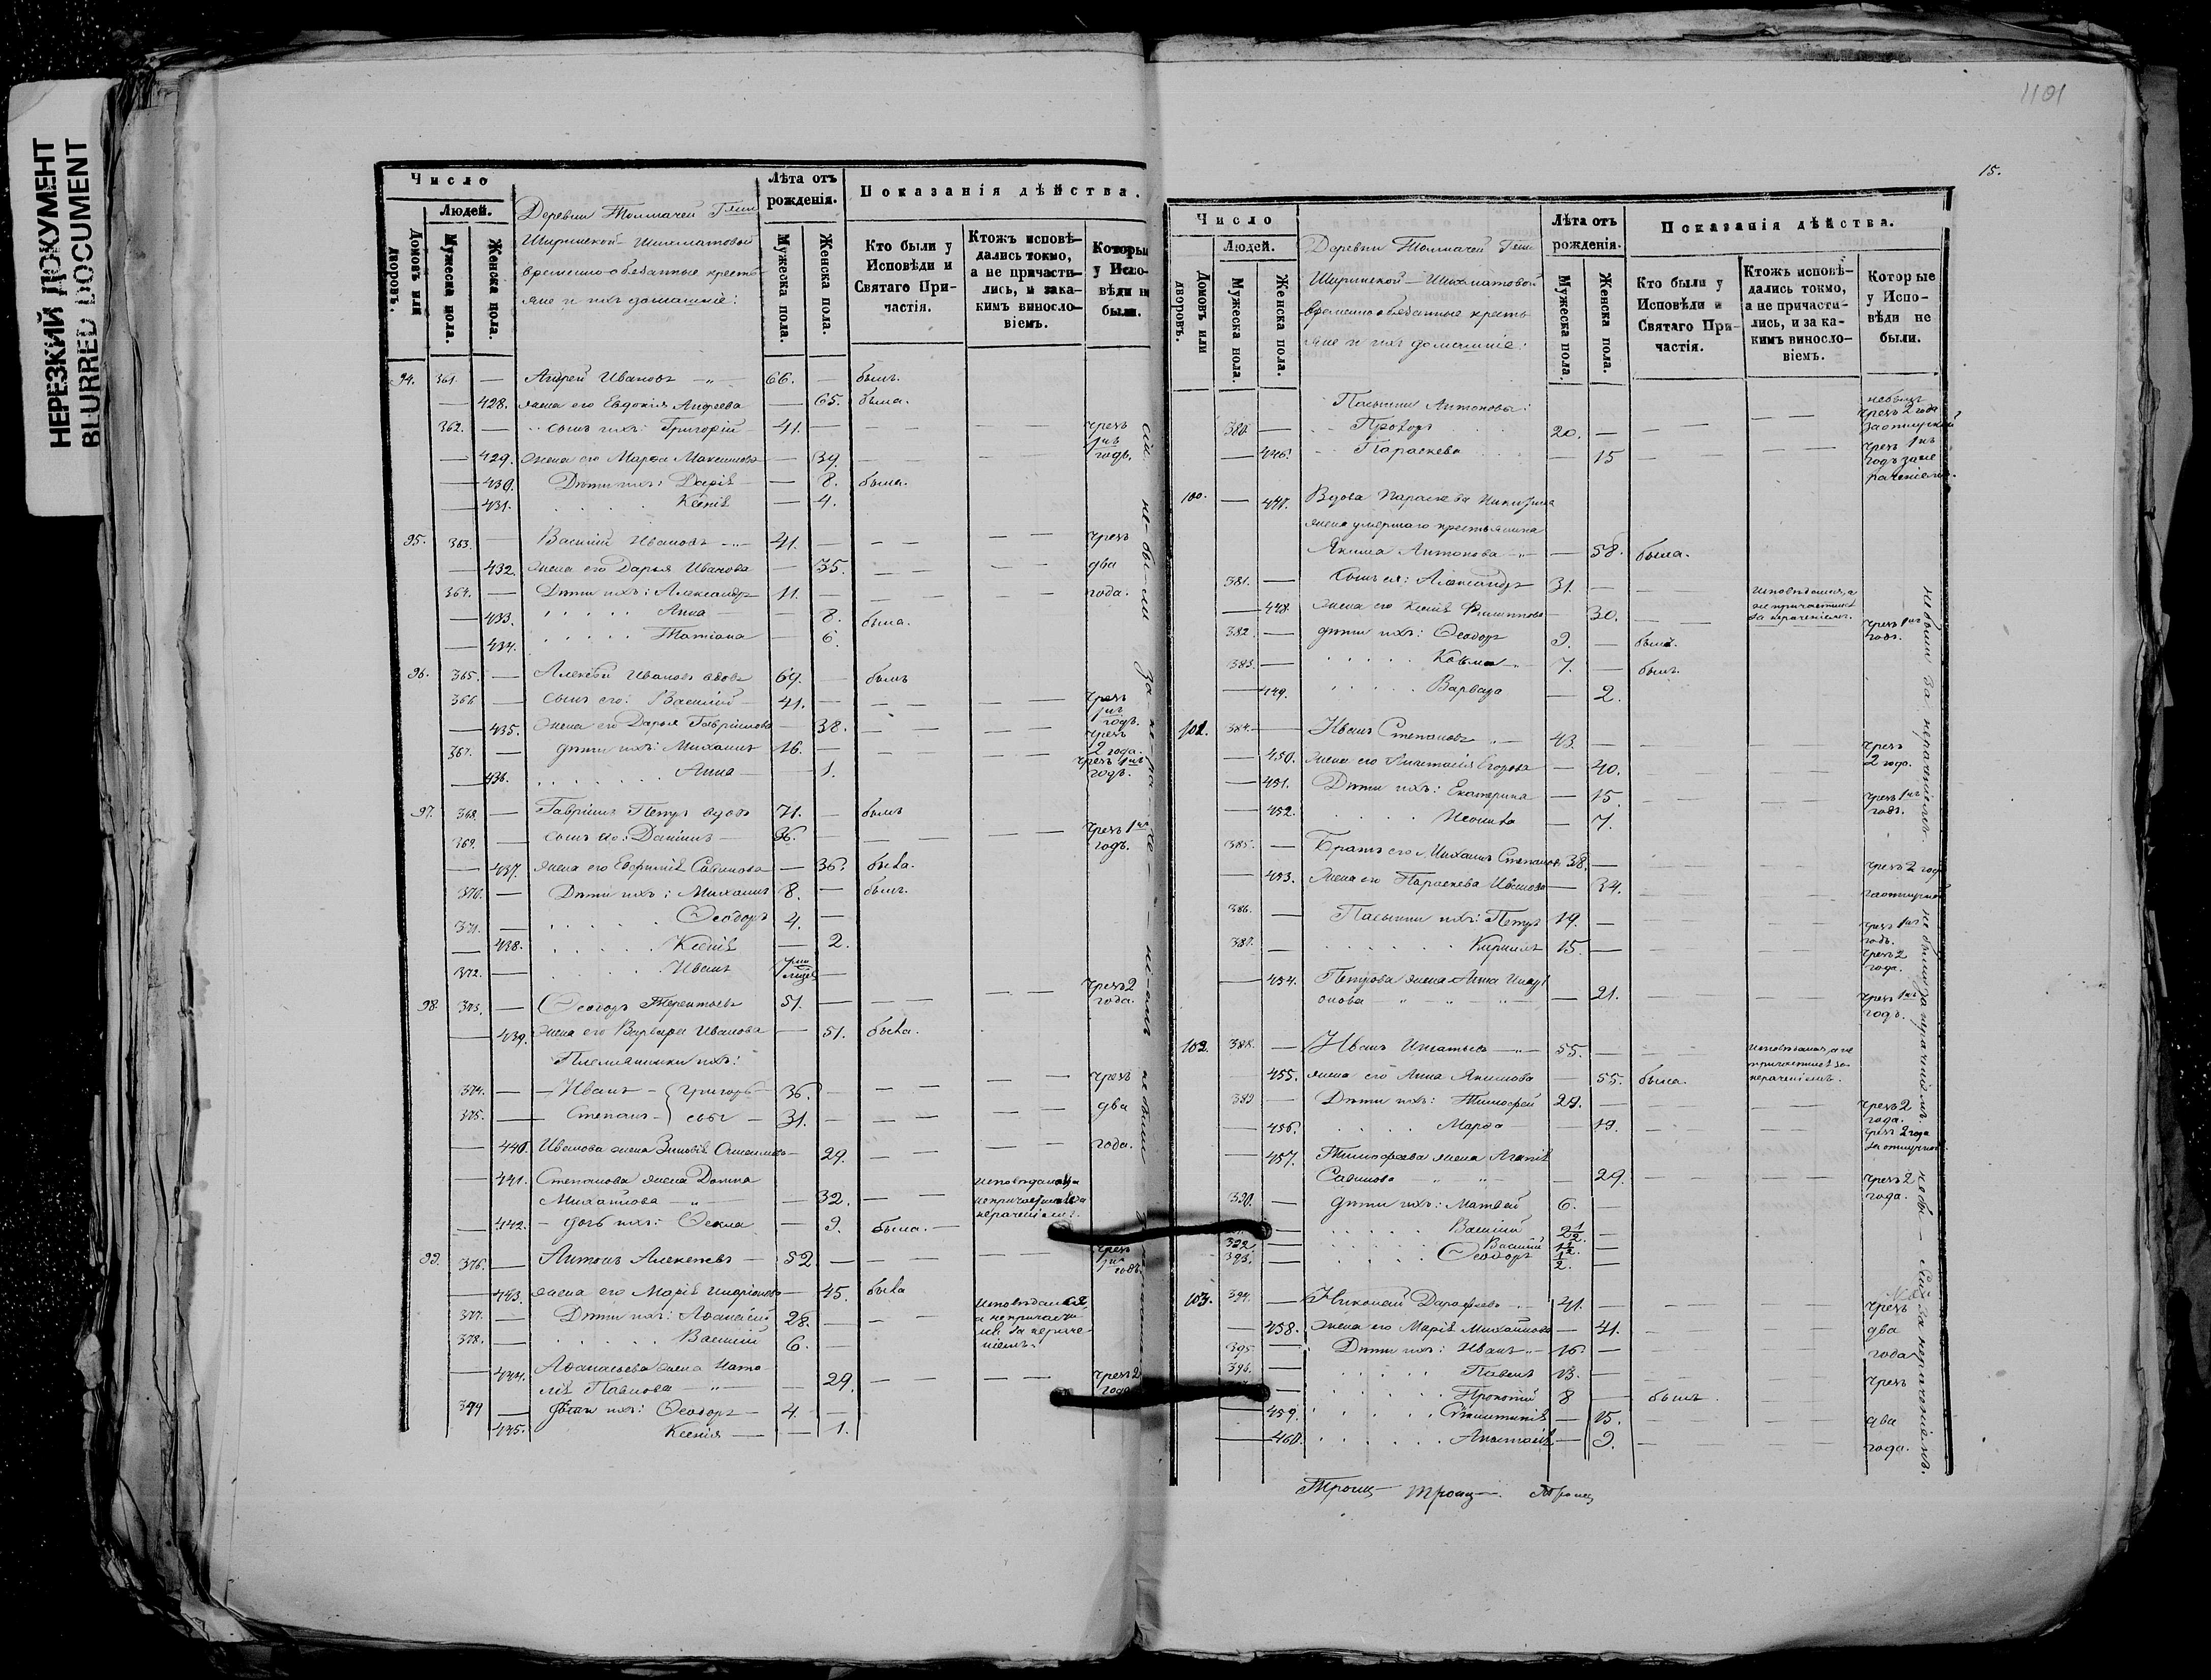 НЕРЕЗКИЙ ДОКУМЕНТ
BLURRED DOCUMENT
Число
Людей.
Домовъ или дворовъ.
Мужеска пола.
Женска пола.
Деревни Толмачей Гжи
Ширинской-Шихматовой
временно-обязанные кресть-
яне и ихъ домашніе:
Лѣта отъ рожденія.
Мужеска пола.
Женска пола.
Показанія дѣйства.
Кто были у Исповѣди и Святаго Причастія.
Ктожъ исповѣдались токмо, а не причастились, и за какимъ винословіемъ.
Которые у Исповѣди не были.
94. 361. — Андрей Ивановъ 66. — былъ.
— 428. жена его Евдокія Андреева — 65. была.
362. — сынъ ихъ: Григорій 41. — — — чрезъ 1нъ годъ.
— 429. Жена его Марѳа Максимова — 39. — —
— 430. Дѣти ихъ: Дарія — 8. была.
— 431. Ксенія — 4.
95. 363. — Василій Ивановъ 41. — — — чрезъ
— 432. жена его Дарья Иванова — 35. — — два
364. — Дѣти ихъ: Александръ 11. — — — года.
— 433. Анна — 8. была.
— 434. Татіана — 6.
96. 365. — Алексѣй Ивановъ вдовъ 69. — былъ
366 — сынъ его: Василій 41. — — — чрезъ 1нъ годъ.
— 435. Жена его Дарья Гаврилова — 38. — —
367. — дѣти ихъ: Михаилъ 16. — — — чрезъ 2 года.
— 436. Анна — 1. чрезъ 1нъ годъ.
97. 368. — Гавріилъ Петръ вдовъ 71. — былъ
369. — сынъ его: Даніилъ 36. — — — чрезъ 1нъ годъ.
— 437. жена его Евфимія Савинова — 36. была.
370. — Дѣти ихъ: Михаилъ 8. — былъ.
371. — Ѳеодоръ 4. —
— 438. Ксенія — 2.
372. — Иванъ
98. 373. — Ѳеодоръ Терентьевъ 51. — — — чрезъ 2 года.
— 439. Жена его Варвара Иванова — 51. была.
Племянники ихъ:
374. — Иванъ Григорь- 36. — — — чрезъ
375. — Степанъ евы 31. — — — два
— 440. Иванова жена Зиновія — 29. — — года.
— 441. Степанова жена Домна
Михайлова — 32. — исповѣдалась а не причастилась за нераченіемъ.
— 442. дочь ихъ: Ѳекла — 9. была.
99. 376. — Антонъ Алексѣевъ 52 — — — чрезъ 1нъ годъ.
— 443. жена его Марія Иларіонова — 45. была
377. — Дѣти ихъ: Аѳанасій 28. — — исповѣдался, а не причастился за нераченіемъ.
378. — Василій 6. —
— 444. Аѳанасьева жена Ната-
лія Павлова — 29. — — чрезъ 2 года
379 — Дѣти ихъ: Ѳеодоръ 4. —
— 445. Ксенія — 1.
1101
15.
Число
Людей.
Домовъ или дворовъ.
Мужеска пола.
Женска пола.
Деревни Толмачей Гжи
Ширинской-Шихматовой
временнообязанные кресть-
яне и ихъ домашніе:
Лѣта отъ рожденія.
Мужеска пола.
Женска пола.
Показанія дѣйства.
Кто были у Исповѣди и Святаго Причастія.
Ктожъ исповѣдались токмо, а не причастились, и за какимъ винословіемъ.
Которые у Исповѣди не были.
Пасынки Антоновы:
380. — Прохоръ 20. — — — небылъ чрезъ 2 года за отлучкой
— 446. Параскева — 15 — чрезъ 1нъ годъ за нераченіемъ.
100. — 447. Вдова Параскева Никитина
жена умершаго крестьянина
Якима Антонова — 58. была.
381. — Сынъ ея: Александръ 31. — — исповѣдался, а не причастился за нераченіемъ.
— 448. жена его Ксенія Филиппова — 30. — чрезъ 1нъ годъ.
382. — дѣти ихъ: Ѳеодоръ 9. — былъ.
383. — Козьма 7. — былъ.
— 449. Варвара — 2.
101. 384. — Иванъ Степановъ 43. — — — чрезъ
— 450. жена его Анастасія Егорова — 40. — — 2 года.
— 451. Дѣти ихъ: Екатерина — 15. — — чрезъ 1нъ годъ.
— 452. — 7.
385. — Братъ его Михаилъ Степановъ 38. — чрезъ 2 года
— 453. Жена его Параскева Иванова — 34. за отлучкой
386. — Пасынки ихъ: Петръ 19. — — — чрезъ 1нъ годъ.
387. — Кириллъ 15. — — — чрезъ 2 года.
— 454. Петрова жена Анна Илар-
іонова — 21. — — чрезъ 1нъ годъ.
102. 388. — Иванъ Игнатьевъ 55. — — исповѣдался, а не причастился за нераченіемъ.
— 455. жена его Анна Якимова — 55. была.
389 — Дѣти ихъ: Тимоѳей 29. — — — чрезъ 2 года.
— 456. Марѳа — 19. — — чрезъ 2 года за отлучкой.
— 457. Тимоѳеева жена Агапія
Савинова — 29. — — чрезъ 2 года.
390. — дѣти ихъ: Матвѣй 6. —
— Василій 2 1/2. —
392. — Василій 1 1/2. —
393. — Ѳеодоръ 1/2. —
103. 394. — Николай Дороѳеевъ 41. — — — чрезъ
— 458. Жена его Марія Михайлова — 41. — — два
395 — Дѣти ихъ: Иванъ 16 — — — года
396. — Павелъ 13. — — — чрезъ
— Прокопій 8 — былъ
— 459. — 15. — — два
— 460. Анастасія — 9. — — года.
не были за нераченіемъ.
не были за нераченіемъ.